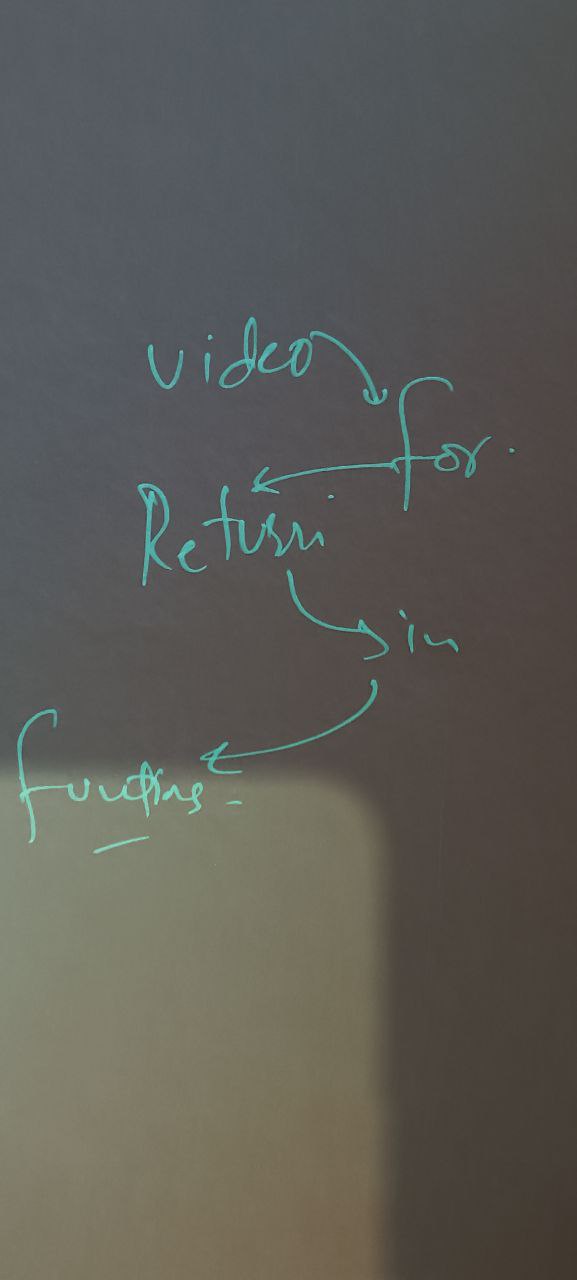 video
for.
Return
in
functions